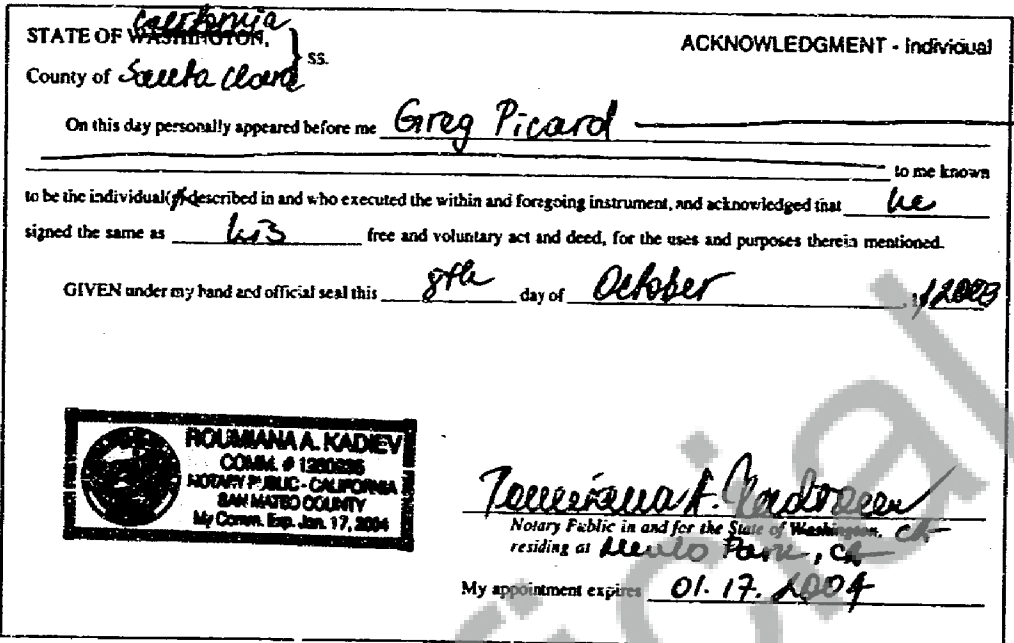 California
STATE OF WASHINGTON,
} ss.
ACKNOWLEDGMENT - Individual
County of Santa Clara
On this day personally appeared before me Greg Picard
to me known
to be the individual(s) described in and who executed the within and foregoing instrument, and acknowledged that he
signed the same as his free and voluntary act and deed, for the uses and purposes therein mentioned.
GIVEN under my hand and official seal this 8th day of October, 2003
ROUMIANA A. KADIEV
COMM. # 1280235
NOTARY PUBLIC - CALIFORNIA
SAN MATEO COUNTY
My Comm. Exp. Jan. 17, 2004
Roumiana A. Kadiev
Notary Public in and for the State of Washington, CA
residing at Menlo Park, CA
My appointment expires 01.17.2004